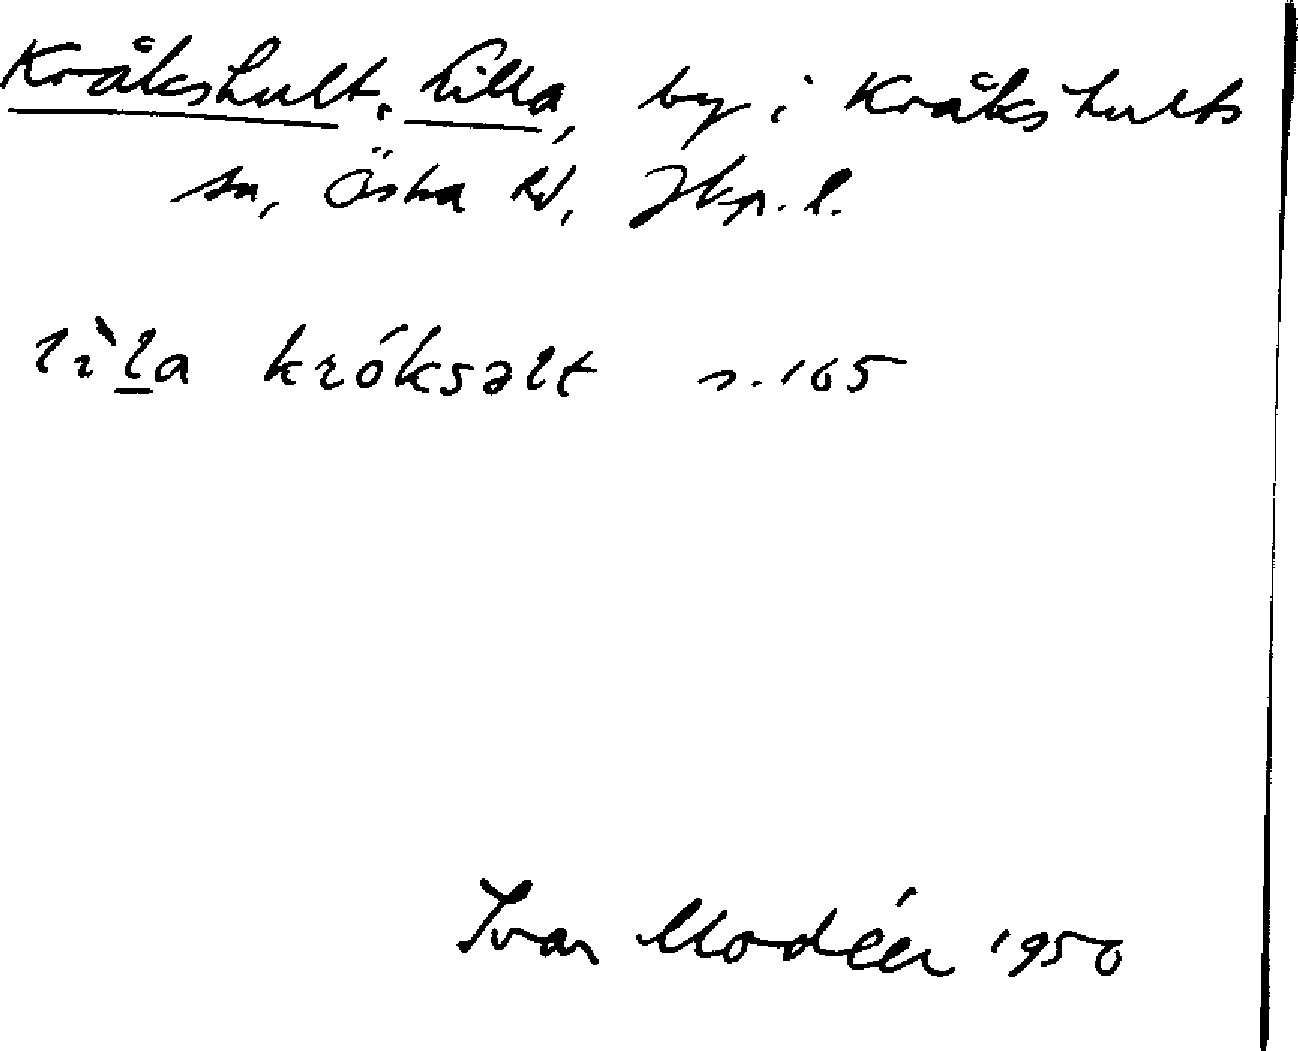 Kråkshult, Lilla, by i Kråkshults
sn, Östra hd, Jkp. l.
lìl̲a króksəlt s. 165
Ivar Modéer 1950